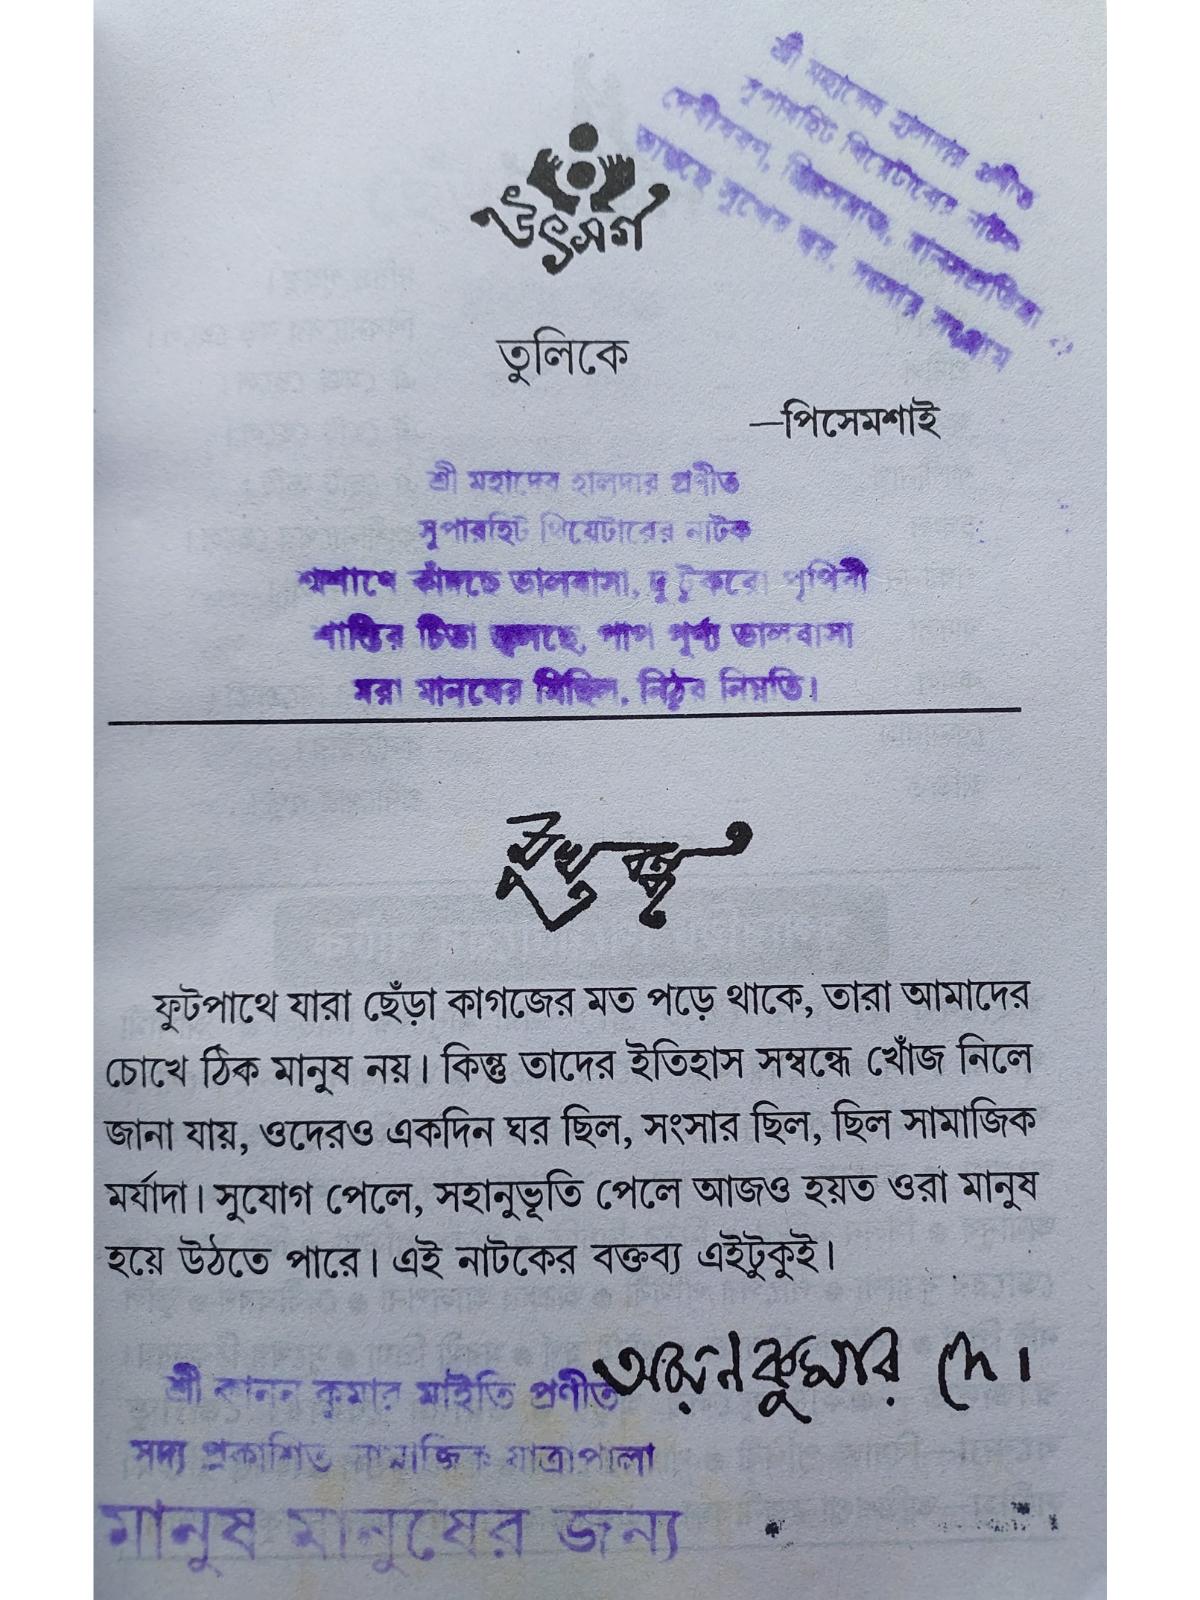 শ্রী মহাদেব হালদার প্রণীত
সুপারহিট থিয়েটারের নাটক
দেবীবরণ,
ভাঙছে সুখের ঘর,
উৎসর্গ
তুলিকে
—পিসেমশাই
শ্রী মহাদেব হালদার প্রণীত
সুপারহিট থিয়েটারের নাটক
শ্মশানে কাঁদছে ভালবাসা, দু টুকরো পৃথিবী
শান্তির চিতা জ্বলছে, পাপ পুণ্য ভালবাসা
মরা মানুষের মিছিল, নিঠুর নিয়তি।
মুখবন্ধ
ফুটপাথে যারা ছেঁড়া কাগজের মত পড়ে থাকে, তারা আমাদের
চোখে ঠিক মানুষ নয়। কিন্তু তাদের ইতিহাস সম্বন্ধে খোঁজ নিলে
জানা যায়, ওদেরও একদিন ঘর ছিল, সংসার ছিল, ছিল সামাজিক
মর্যাদা। সুযোগ পেলে, সহানুভূতি পেলে আজও হয়ত ওরা মানুষ
হয়ে উঠতে পারে। এই নাটকের বক্তব্য এইটুকুই।
কুমার দে।
শ্রী কানন কুমার মাইতি প্রণীত
সদ্য প্রকাশিত সামাজিক যাত্রাপালা
মানুষ মানুষের জন্য